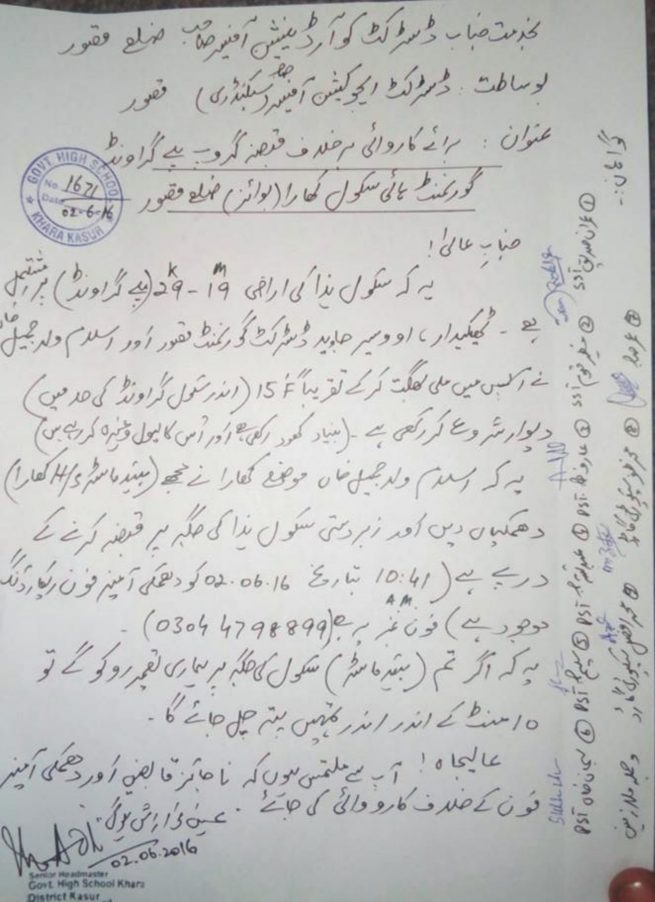 بخدمت جناب ڈسٹرکٹ کوآرڈینیشن آفیسر صاحب ضلع قصور
بوساطت: ڈسٹرکٹ ایجوکیشن آفیسر صاحب (سیکنڈری) قصور
عنوان: برائے کاروائی برخلاف قبضہ گروپ پلے گراونڈ
گورنمنٹ ہائی سکول کھارا (بوائز) ضلع قصور
GOVT. HIGH SCHOOL
No. 1671
Date 02-6-16
KHARA KASUR
جناب عالی!
یہ کہ سکول ہذا کی اراضی 29K - 19M (پلے گراونڈ) پر مشتمل
ہے - ٹھیکیدار، اوورسیر جاوید ڈسٹرکٹ گورنمنٹ قصور اور اسلام ولد جمیل خاں
نے آپس میں ملی بھگت کر کے تقریباً 15F (اندر سکول گراونڈ کی حد میں)
دیوار شروع کر رکھی ہے - (بنیاد کھود رکھی ہے اور اُس کا لیول وغیرہ کر رہے ہیں)
یہ کہ اسلام ولد جمیل خاں موضع کھارا نے مجھے (ہیڈ ماسٹر H/S کھارا)
دھمکیاں دیں اور زبردستی سکول ہذا کی جگہ پر قبضہ کرنے کے
درپے ہے (10:41 AM بتاریخ 02.06.16 کو دھمکی آمیز فون ریکارڈنگ
موجود ہے) فون نمبر یہ ہے (0304 4798899) -
یہ کہ اگر تم (ہیڈ ماسٹر) سکول کی جگہ پر ہماری تعمیر روکو گے تو
10 منٹ کے اندر اندر تمہیں پتہ چل جائے گا -
عالیجاہ! آپ سے ملتمس ہوں کہ ناجائز قابض اور دھمکی آمیز
فون کے خلاف کارووائی کی جائے - عین نوازش ہوگی
02.06.2016
Senior Headmaster
Govt. High School Khara
District Kasur
گواہان:-
① SST ② SST ③ PST ④ PST ⑤ PST ⑥ PST